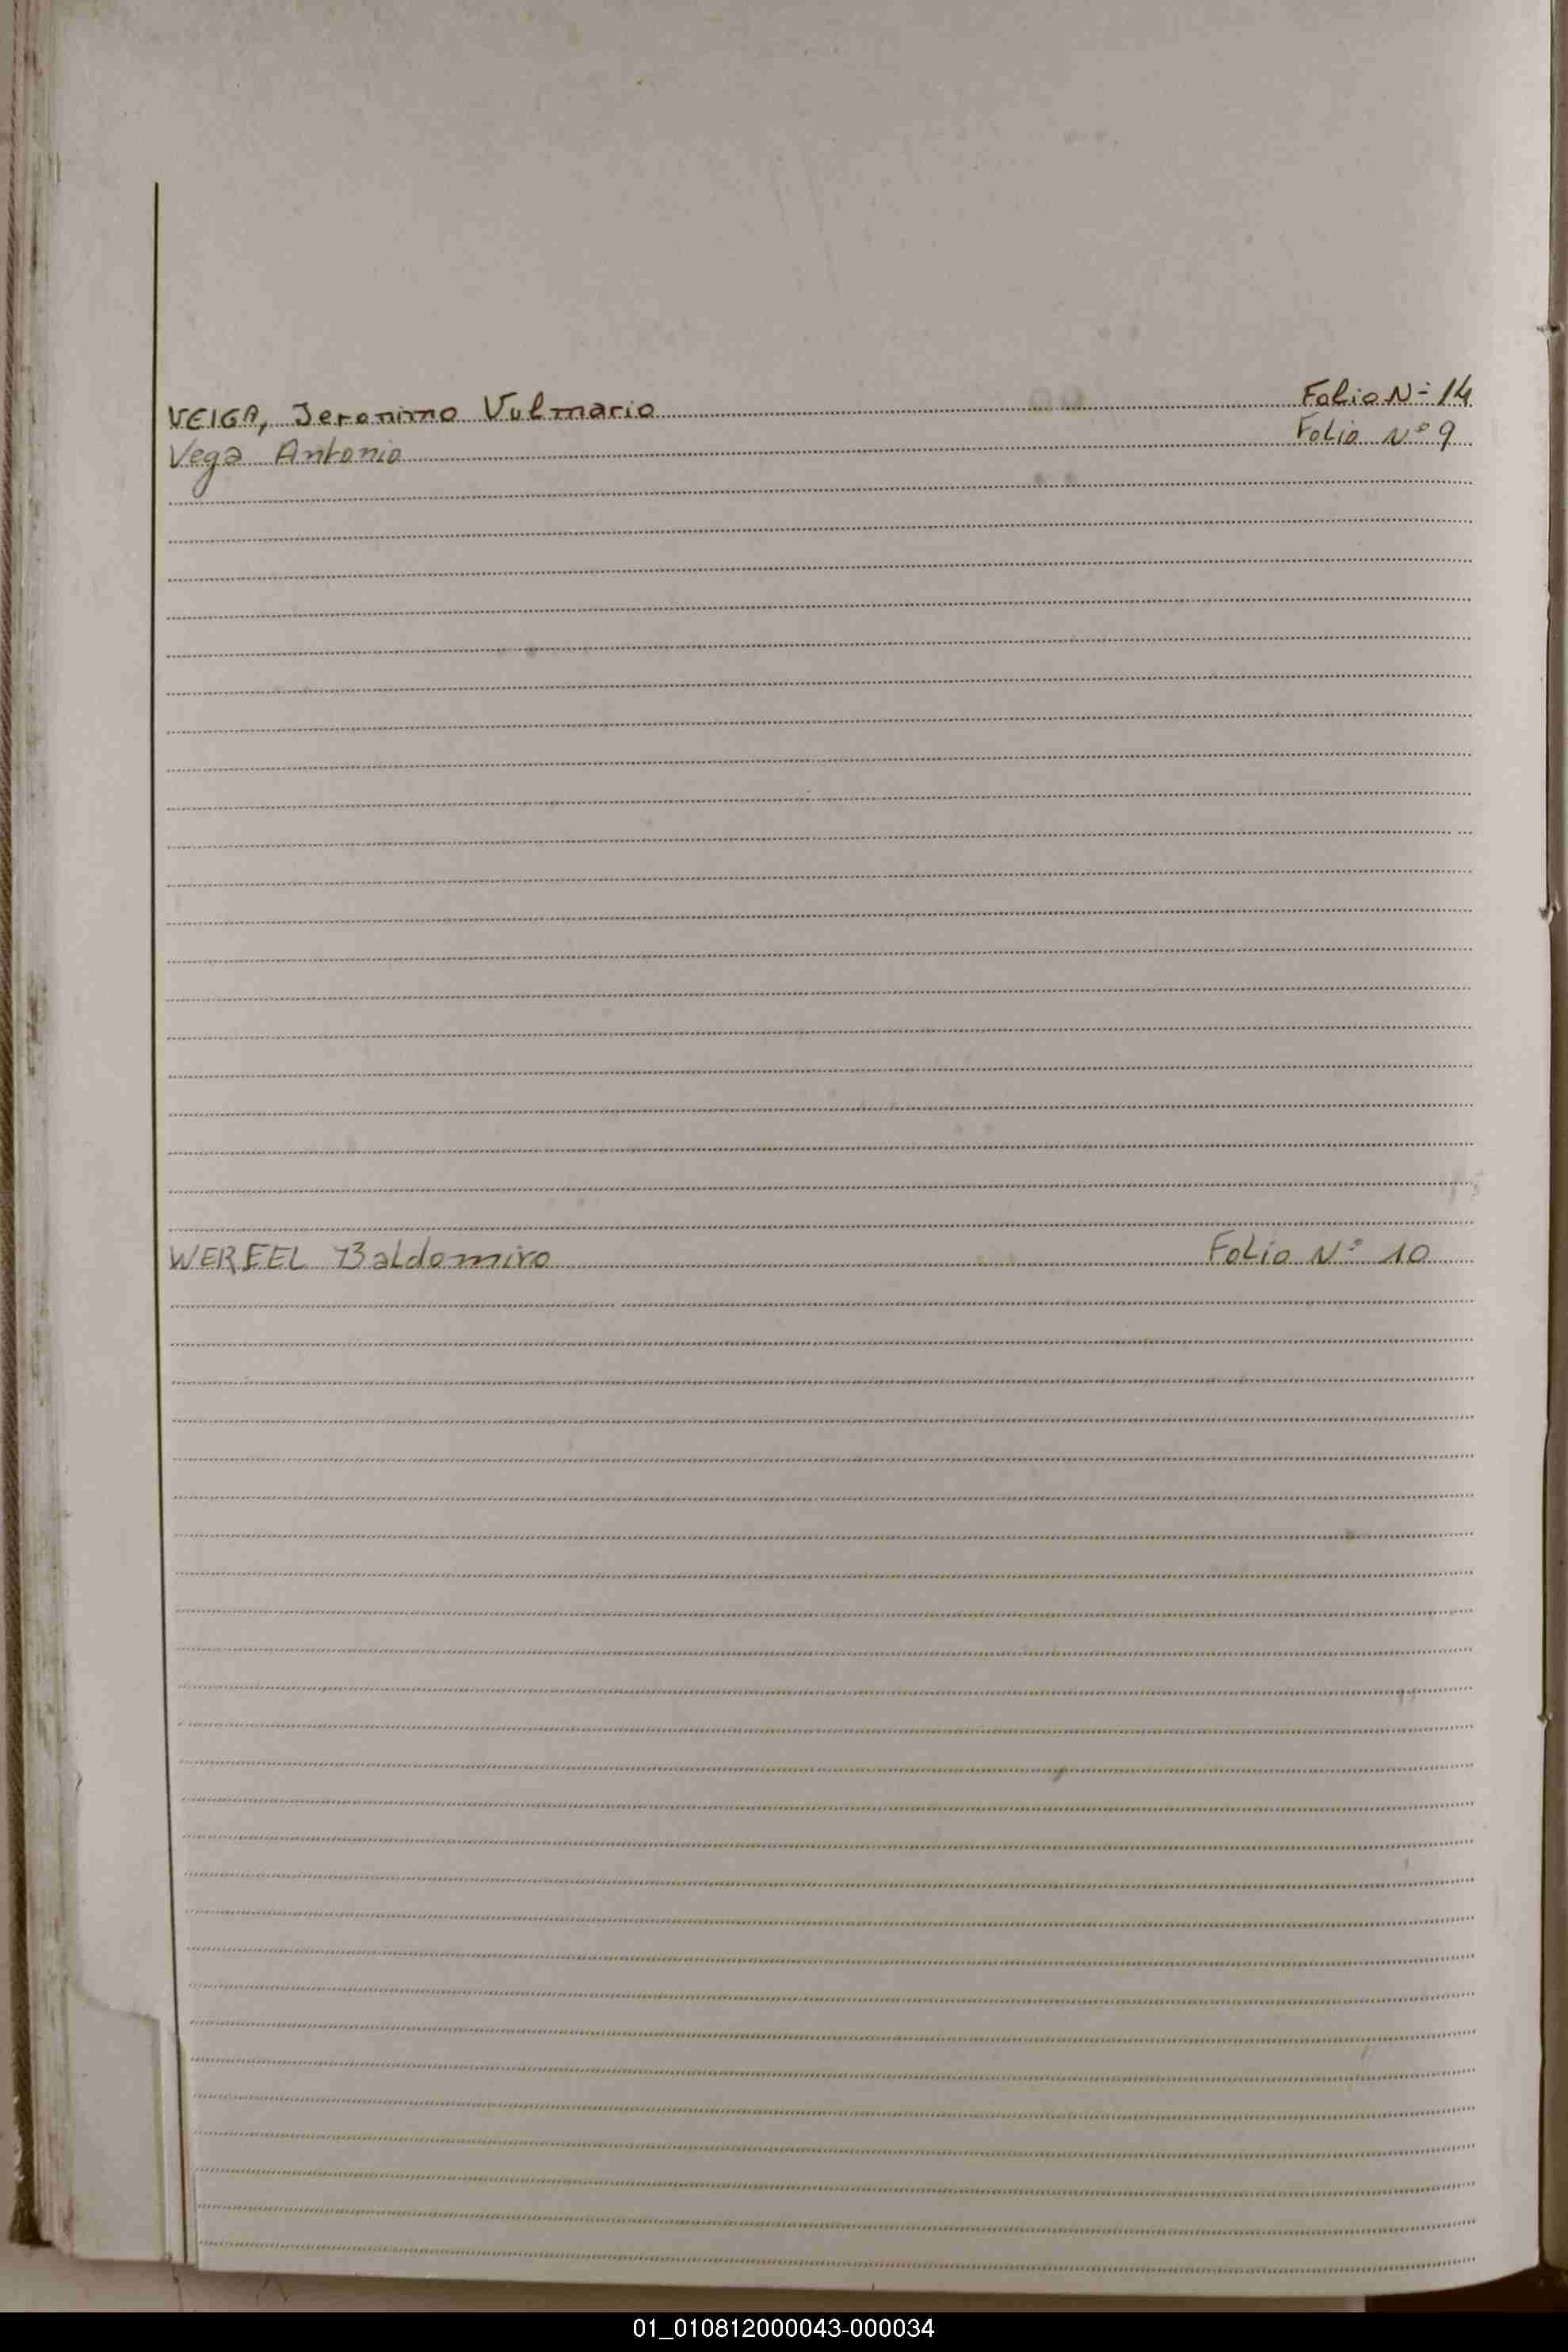 VEIGA, Jeronimo Vulmario Folio N° 14
Vega Antonio Folio N° 9
WERFEL Baldomiro Folio N° 10
01_010812000043-000034